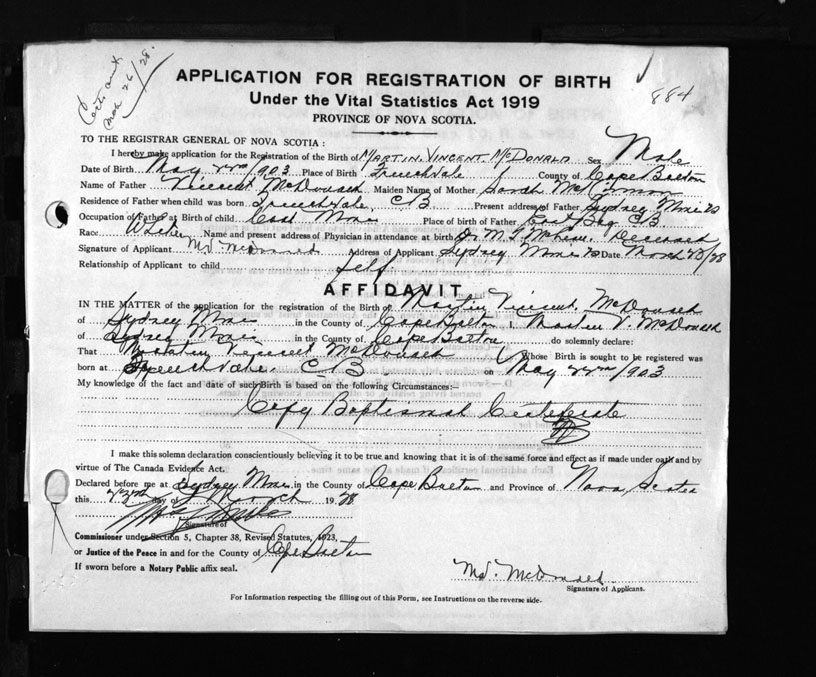 Mar 26/28.
884
APPLICATION FOR REGISTRATION OF BIRTH
Under the Vital Statistics Act 1919
PROVINCE OF NOVA SCOTIA.
TO THE REGISTRAR GENERAL OF NOVA SCOTIA :
I hereby make application for the Registration of the Birth of MARTIN. VINCENT. McDONALD Sex Male
Date of Birth May 22nd/903 Place of Birth Frenchvale County of Cape Breton
Name of Father Vincent McDonald Maiden Name of Mother Sarah McKinnon
Residence of Father when child was born Frenchvale, C B Present address of Father Sydney Mines
Occupation of Father at Birth of child Coal Mine Place of birth of Father East Bay C B
Race Name and present address of Physician in attendance at birth Dr. M. Deceased
Signature of Applicant MV McDonald Address of Applicant Sydney Mines Date March /28
Relationship of Applicant to child self
AFFIDAVIT
IN THE MATTER of the application for the registration of the Birth of Martin Vincent McDonald
of Sydney Mines in the County of Cape Breton I, Martin V. McDonald
of Sydney Mines in the County of Cape Breton do solemnly declare:
That Martin Vincent McDonald Whose Birth is sought to be registered was
born at Frenchvale. C B. on May 22nd/903
My knowledge of the fact and date of such Birth is based on the following Circumstances:—
Copy Baptismal Certificate
I make this solemn declaration conscientiously believing it to be true and knowing that it is of the same force and effect as if made under oath and by
virtue of The Canada Evidence Act.
Declared before me at Sydney Mines in the County of Cape Breton and Province of Nova Scotia
this day of March 1928
Signature of
Commissioner under Section 5, Chapter 38, Revised Statutes, 1923,
or Justice of the Peace in and for the County of Cape Breton
If sworn before a Notary Public affix seal.
MV. McDonald
Signature of Applicant.
For Information respecting the filling out of this Form, see Instructions on the reverse side.